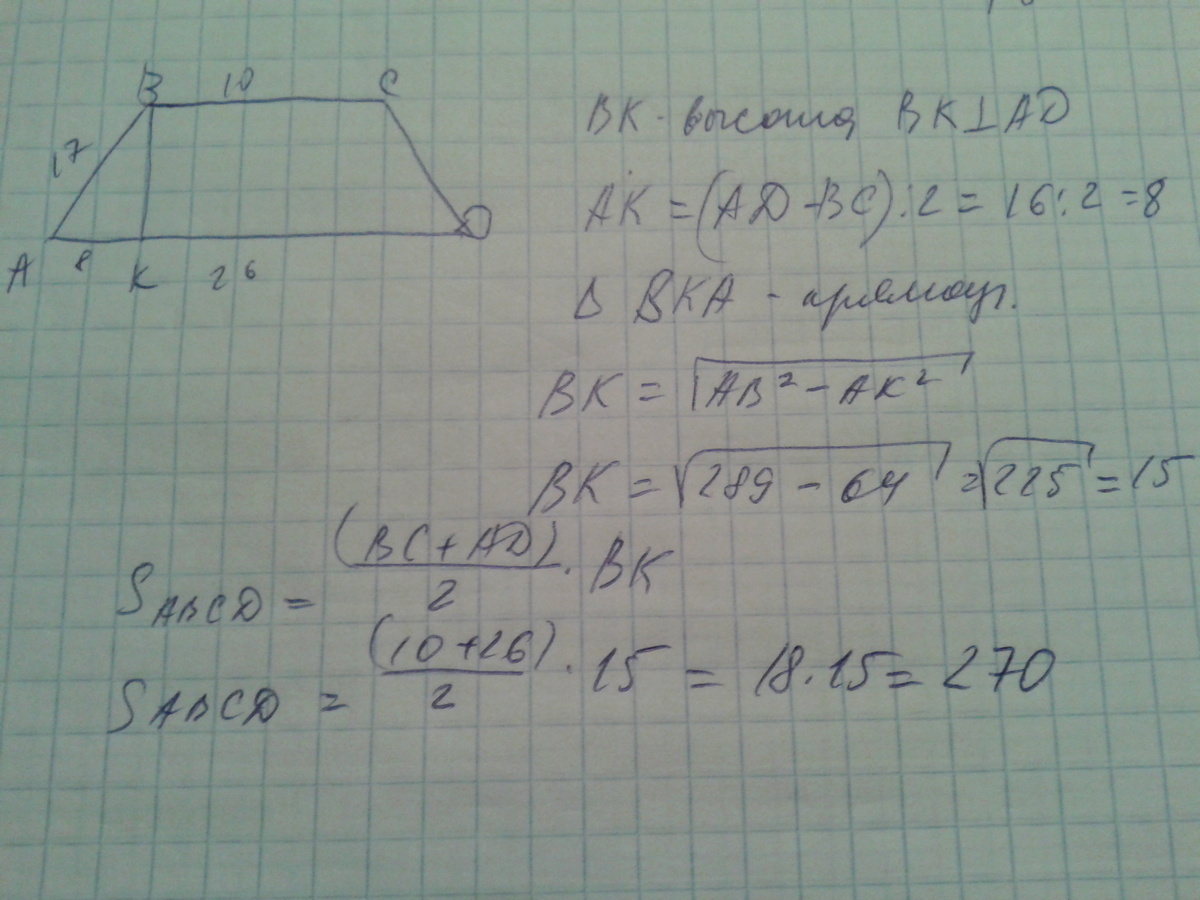 B 10 C
17
A 8 K 26 D
BK - высота, BK⊥AD
AK = (AD-BC):2 = 16:2 = 8
Δ BKA - прямоуг.
BK = √AB² - AK²
BK = √289 - 64 = √225 = 15
S ABCD = (BC+AD)/2 · BK
S ABCD = (10+26)/2 · 15 = 18·15 = 270